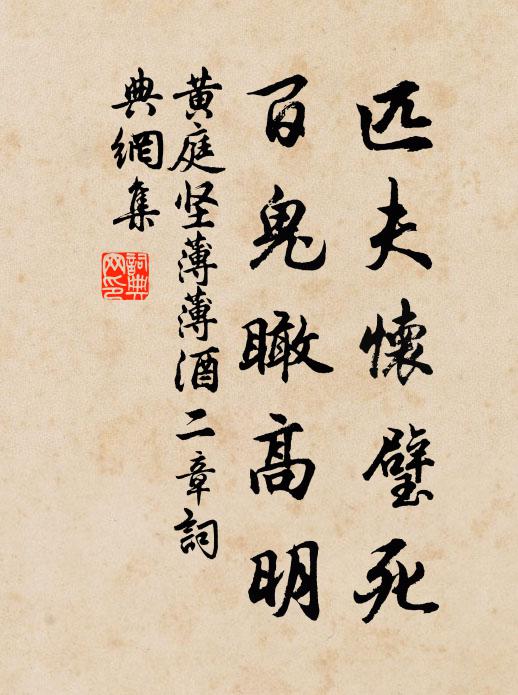 匹夫懷璧死
百鬼瞰高明
黄庭坚薄薄酒二章詞
典網集
詞典
网印